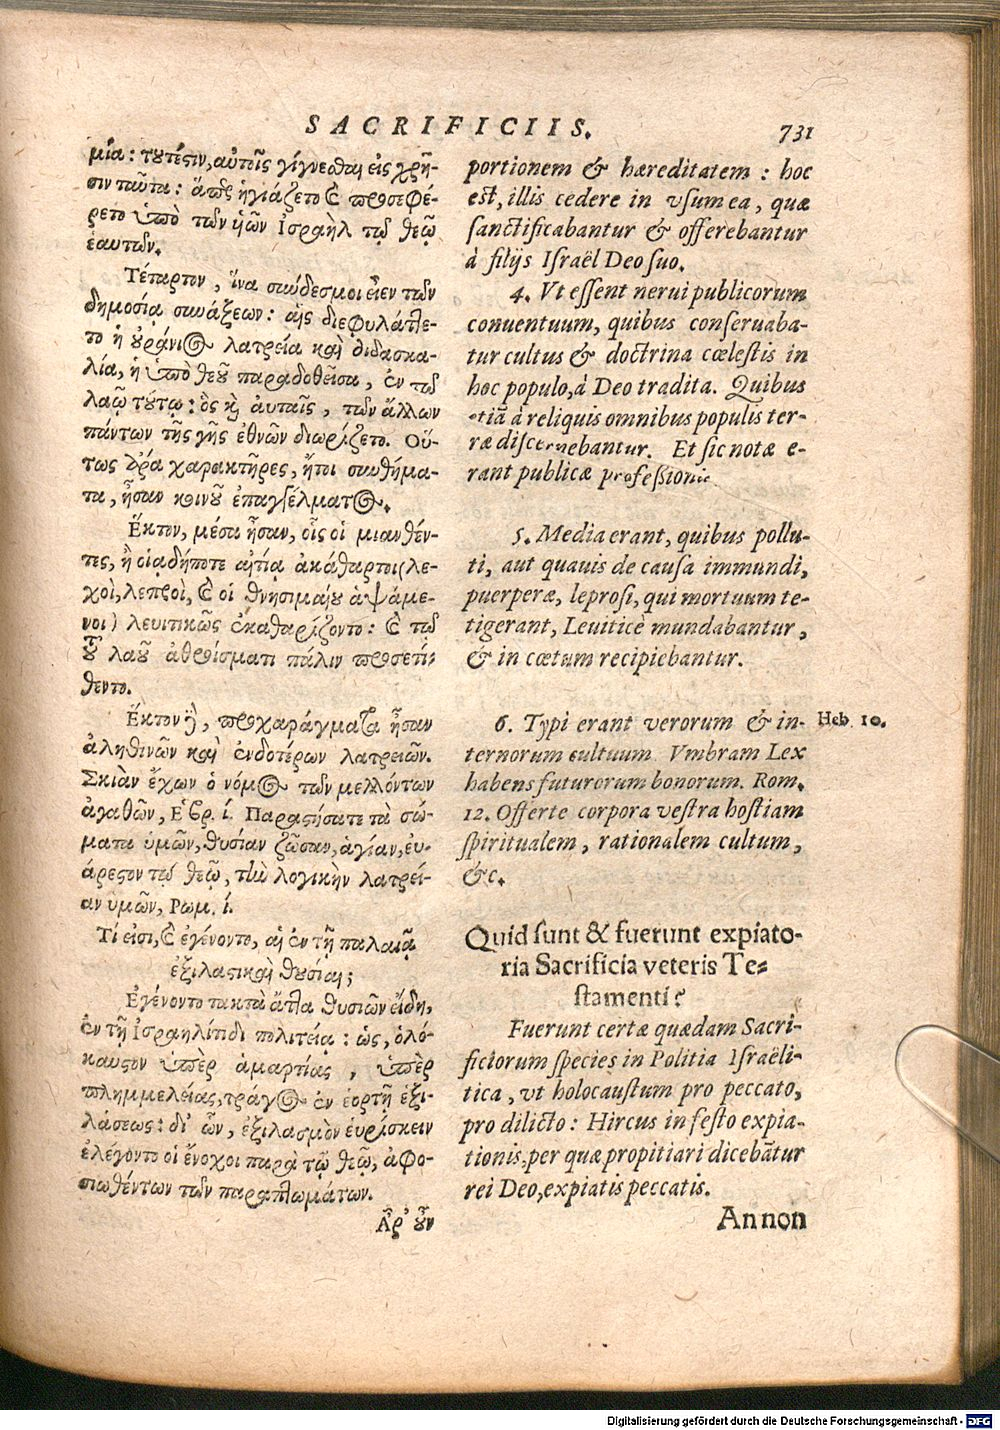 SACRIFICIIS. 731
μία: τουτέστιν, αὐτοῖς γίγνεσθαι εἰς χρῆ-
σιν ταῦτα: ἅπερ ἡγιάζετο καὶ προσεφέ-
ρετο ὑπὸ τῶν ἡῶν Ἰσραὴλ τῷ θεῷ
ἑαυτῶν.
Τέταρτον, ἵνα σύνδεσμοι εἶεν τῶν
δημοσίᾳ συνάξεων: αἷς διεφυλάττε-
το ἡ οὐράνιος λατρεία καὶ διδασκα-
λία, ἡ ὑπὸ θεοῦ παραδοθεῖσα, ἐν τῷ
λαῷ τούτῳ: ὃς καὶ αὐταῖς, τῶν ἄλλων
πάντων τῆς γῆς ἐθνῶν διωρίζετο. Οὕ-
τως ἄρα χαρακτῆρες, ἤτοι συνθήμα-
τα, ἦσαν κοινοῦ ἐπαγγέλματος.
Ἕκτον, μέσα ἦσαν, οἷς οἱ μιανθέν-
τες, ἢ οἱαδήποτε αἰτίᾳ ἀκάθαρτοι (λε-
χοὶ, λεπροὶ, καὶ οἱ θνησιμαίου ἁψάμε-
νοι) λευιτικῶς ἐκαθαρίζοντο: καὶ τῷ
τοῦ λαοῦ ἀθροίσματι πάλιν προσετί-
θεντο.
Ἕκτον δὲ, προχαράγματα ἦσαν
ἀληθινῶν καὶ ἐνδοτέρων λατρειῶν.
Σκιὰν ἔχων ὁ νόμος τῶν μελλόντων
ἀγαθῶν, Εβρ. ί. Παραστήσατε τὰ σώ-
ματα ὑμῶν, θυσίαν ζῶσαν, ἁγίαν, εὐ-
άρεστον τῷ θεῷ, τὴν λογικὴν λατρεί-
αν ὑμῶν, Ρωμ. ί.
Τί εἰσι, καὶ ἐγένοντο, αἱ ἐν τῇ παλαιᾷ
ἐξιλαστικαὶ θυσίαι;
Ἐγένοντο τακτὰ ἄττα θυσιῶν εἴδη,
ἐν τῇ Ἰσραηλίτιδι πολιτείᾳ: ὡς, ὁλό-
καυστον ὑπὲρ ἁμαρτίας, ὑπὲρ
πλημμελείας, τράγος ἐν ἑορτῇ ἐξι-
λάσεως: δι᾽ ὧν, ἐξιλασμὸν εὑρίσκειν
ἐλέγοντο οἱ ἔνοχοι παρὰ τῷ θεῷ, ἀφο-
σιωθέντων τῶν παραπτωμάτων.
Ἆρ᾽ οὖν
portionem & hæreditatem : hoc
est, illis cedere in vsum ea, quæ
sanctificabantur & offerebantur
à filijs Israël Deo suo.
4. Vt essent nerui publicorum
conuentuum, quibus conseruaba-
tur cultus & doctrina cœlestis in
hoc populo, à Deo tradita. Quibus
etiã à reliquis omnibus populis ter-
ræ discernebantur. Et sic notæ e-
rant publicæ professionis
5. Media erant, quibus pollu-
ti, aut quauis de causa immundi,
puerperæ, leprosi, qui mortuum te-
tigerant, Leuiticè mundabantur,
& in cœtum recipiebantur.
6. Typi erant verorum & in-
ternorum cultuum Vmbram Lex
habens futurorum bonorum. Rom.
12. Offerte corpora vestra hostiam
spiritualem, rationalem cultum,
&c.
Heb. 10.
Quid sunt & fuerunt expiato-
ria Sacrificia veteris Te-
stamenti?
Fuerunt certæ quædam Sacri-
ficiorum species in Politia Israëli-
tica, vt holocaustum pro peccato,
pro dilicto: Hircus in festo expia-
tionis, per quæ propitiari dicebãtur
rei Deo, expiatis peccatis.
Annon
Digitalisierung gefördert durch die Deutsche Forschungsgemeinschaft - DFG